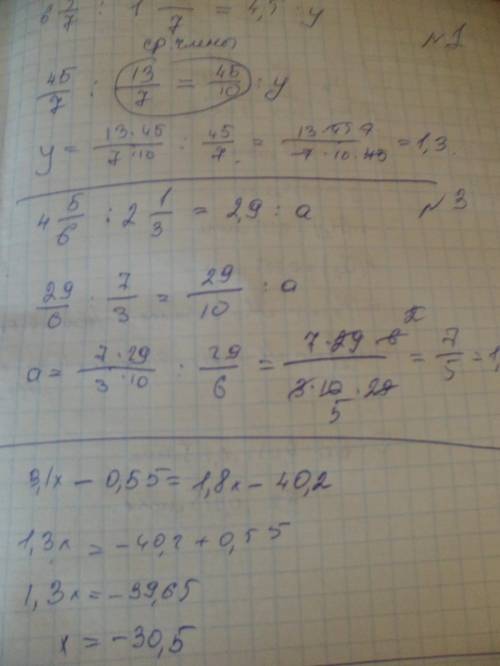 6 3/7 : 1 /7 = 4,5 : y
ср. члены
№1
45/7 : 13/7 = 45/10 : y
y = 13·45/7·10 : 45/7 = 13·45·7/7·10·45 = 1,3
№3
4 5/6 : 2 1/3 = 2,9 : a
29/6 : 7/3 = 29/10 : a
a = 7·29/3·10 : 29/6 = 7·29·6 2/3·10·29 5 = 7/5 = 1,
3,1x − 0,55 = 1,8x − 40,2
1,3x = −40,2 + 0,55
1,3x = −39,65
x = −30,5